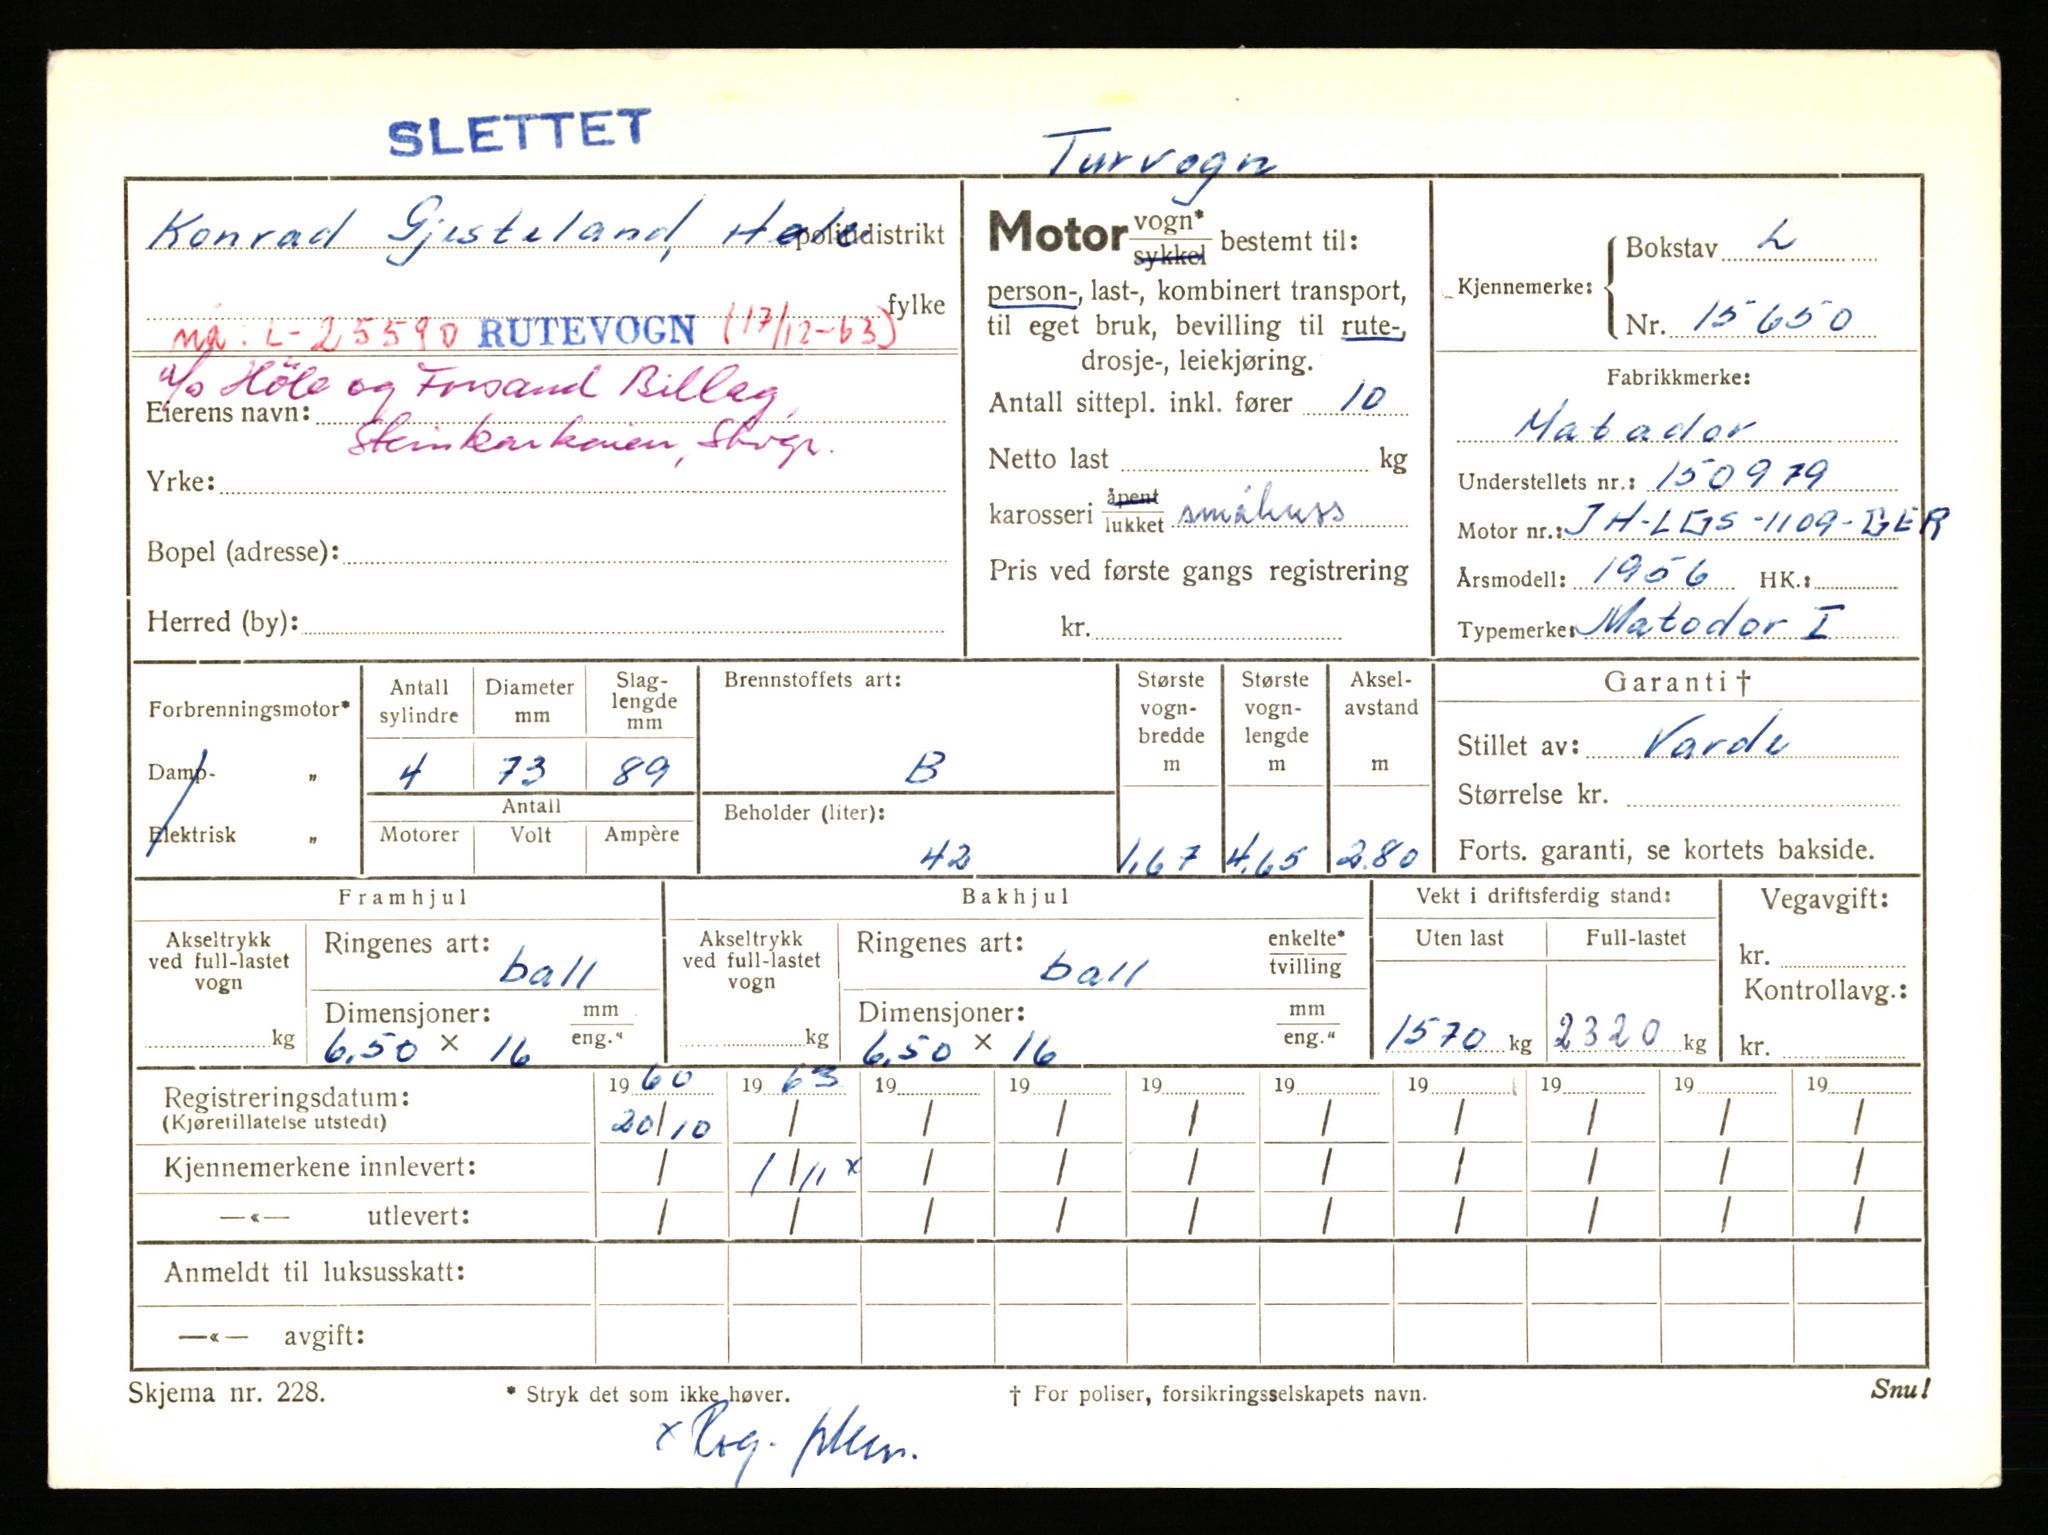 SLETTET
Turvogn
Konrad Gjesteland, Hole politidistrikt
fylke
nå: L-25590 RUTEVOGN (17/12-63)
a/s Höle og Forsand Billag,
Eierens navn:
Steinkarkaien, Stvgr.
Yrke:
Bopel (adresse):
Herred (by):
Motor vogn* sykkel bestemt til:
person-, last-, kombinert transport,
til eget bruk, bevilling til rute-,
drosje-, leiekjøring.
Antall sittepl. inkl. fører 10
Netto last kg
karosseri åpent lukket småbuss
Pris ved første gangs registrering
kr.
Kjennemerke: Bokstav L
Nr. 15650
Fabrikkmerke:
Matador
Understellets nr.: 150979
Motor nr.:
Årsmodell: 1956 HK.:
Typemerke: Matodor I
Forbrenningsmotor*
Damp- „
Elektrisk „
Antall sylindre
4
Diameter mm
73
Slag-lengde mm
89
Antall
Motorer Volt Ampère
Brennstoffets art:
B
Beholder (liter):
42
Største vogn-bredde m
1,67
Største vogn-lengde m
4,65
Aksel-avstand m
2.80
Garanti †
Stillet av: Varde
Størrelse kr.
Forts. garanti, se kortets bakside.
Framhjul
Akseltrykk ved full-lastet vogn
kg
Ringenes art:
ball
Dimensjoner: mm eng.“
6.50 × 16
Bakhjul
Akseltrykk ved full-lastet vogn
kg
Ringenes art: enkelte* tvilling
ball
Dimensjoner: mm eng.“
6.50 × 16
Vekt i driftsferdig stand:
Uten last Full-lastet
1570 kg 2320 kg
Vegavgift:
kr.
Kontrollavg.:
kr.
Registreringsdatum: 19 60 19 63 19 19 19 19 19 19 19 19
(Kjøretillatelse utstedt) 20/10 / / / / / / / / /
Kjennemerkene innlevert: / 1/11 x / / / / / / / /
—«— utlevert: / / / / / / / / / /
Anmeldt til luksusskatt:
—«— avgift:
Skjema nr. 228. * Stryk det som ikke høver. † For poliser, forsikringsselskapets navn. Snu!
x Rog.